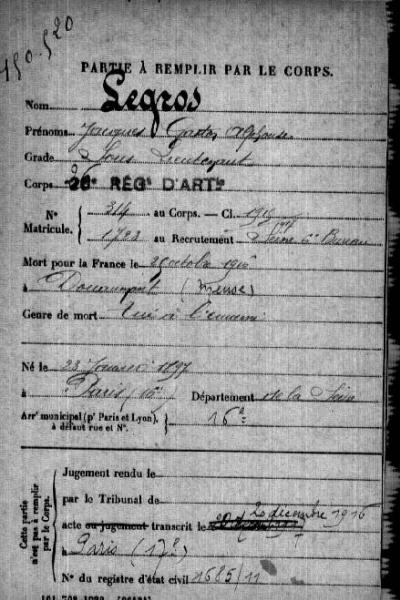 190.520
PARTIE À REMPLIR PAR LE CORPS.
Nom Legros
Prénoms Jacques Gaston Alphonse
Grade Sous Lieutenant
Corps 26e RÉGt D'ARTie
No 314 au Corps. — Cl. 1917
Matricule. 1722 au Recrutement Seine 6e Bureau
Mort pour la France le octobre 1916
à Douaumont (Meuse)
Genre de mort Tué à l'ennemi
Né le 23 Janvier 1897
à Paris Département de la Seine
Arrt municipal (pr Paris et Lyon), à défaut rue et No. 16e
Cette partie n'est pas à remplir par le Corps.
Jugement rendu le
par le Tribunal de
acte ou jugement transcrit le 20 décembre 1916
à Paris (17e)
No du registre d'état civil 1685/11